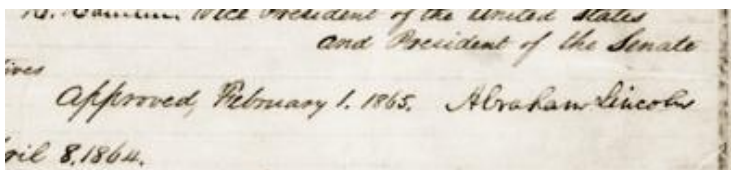 H. Hamlin Vice President of the United States
and President of the Senate
ives
Approved, February 1. 1865. Abraham Lincoln
ril 8. 1864.